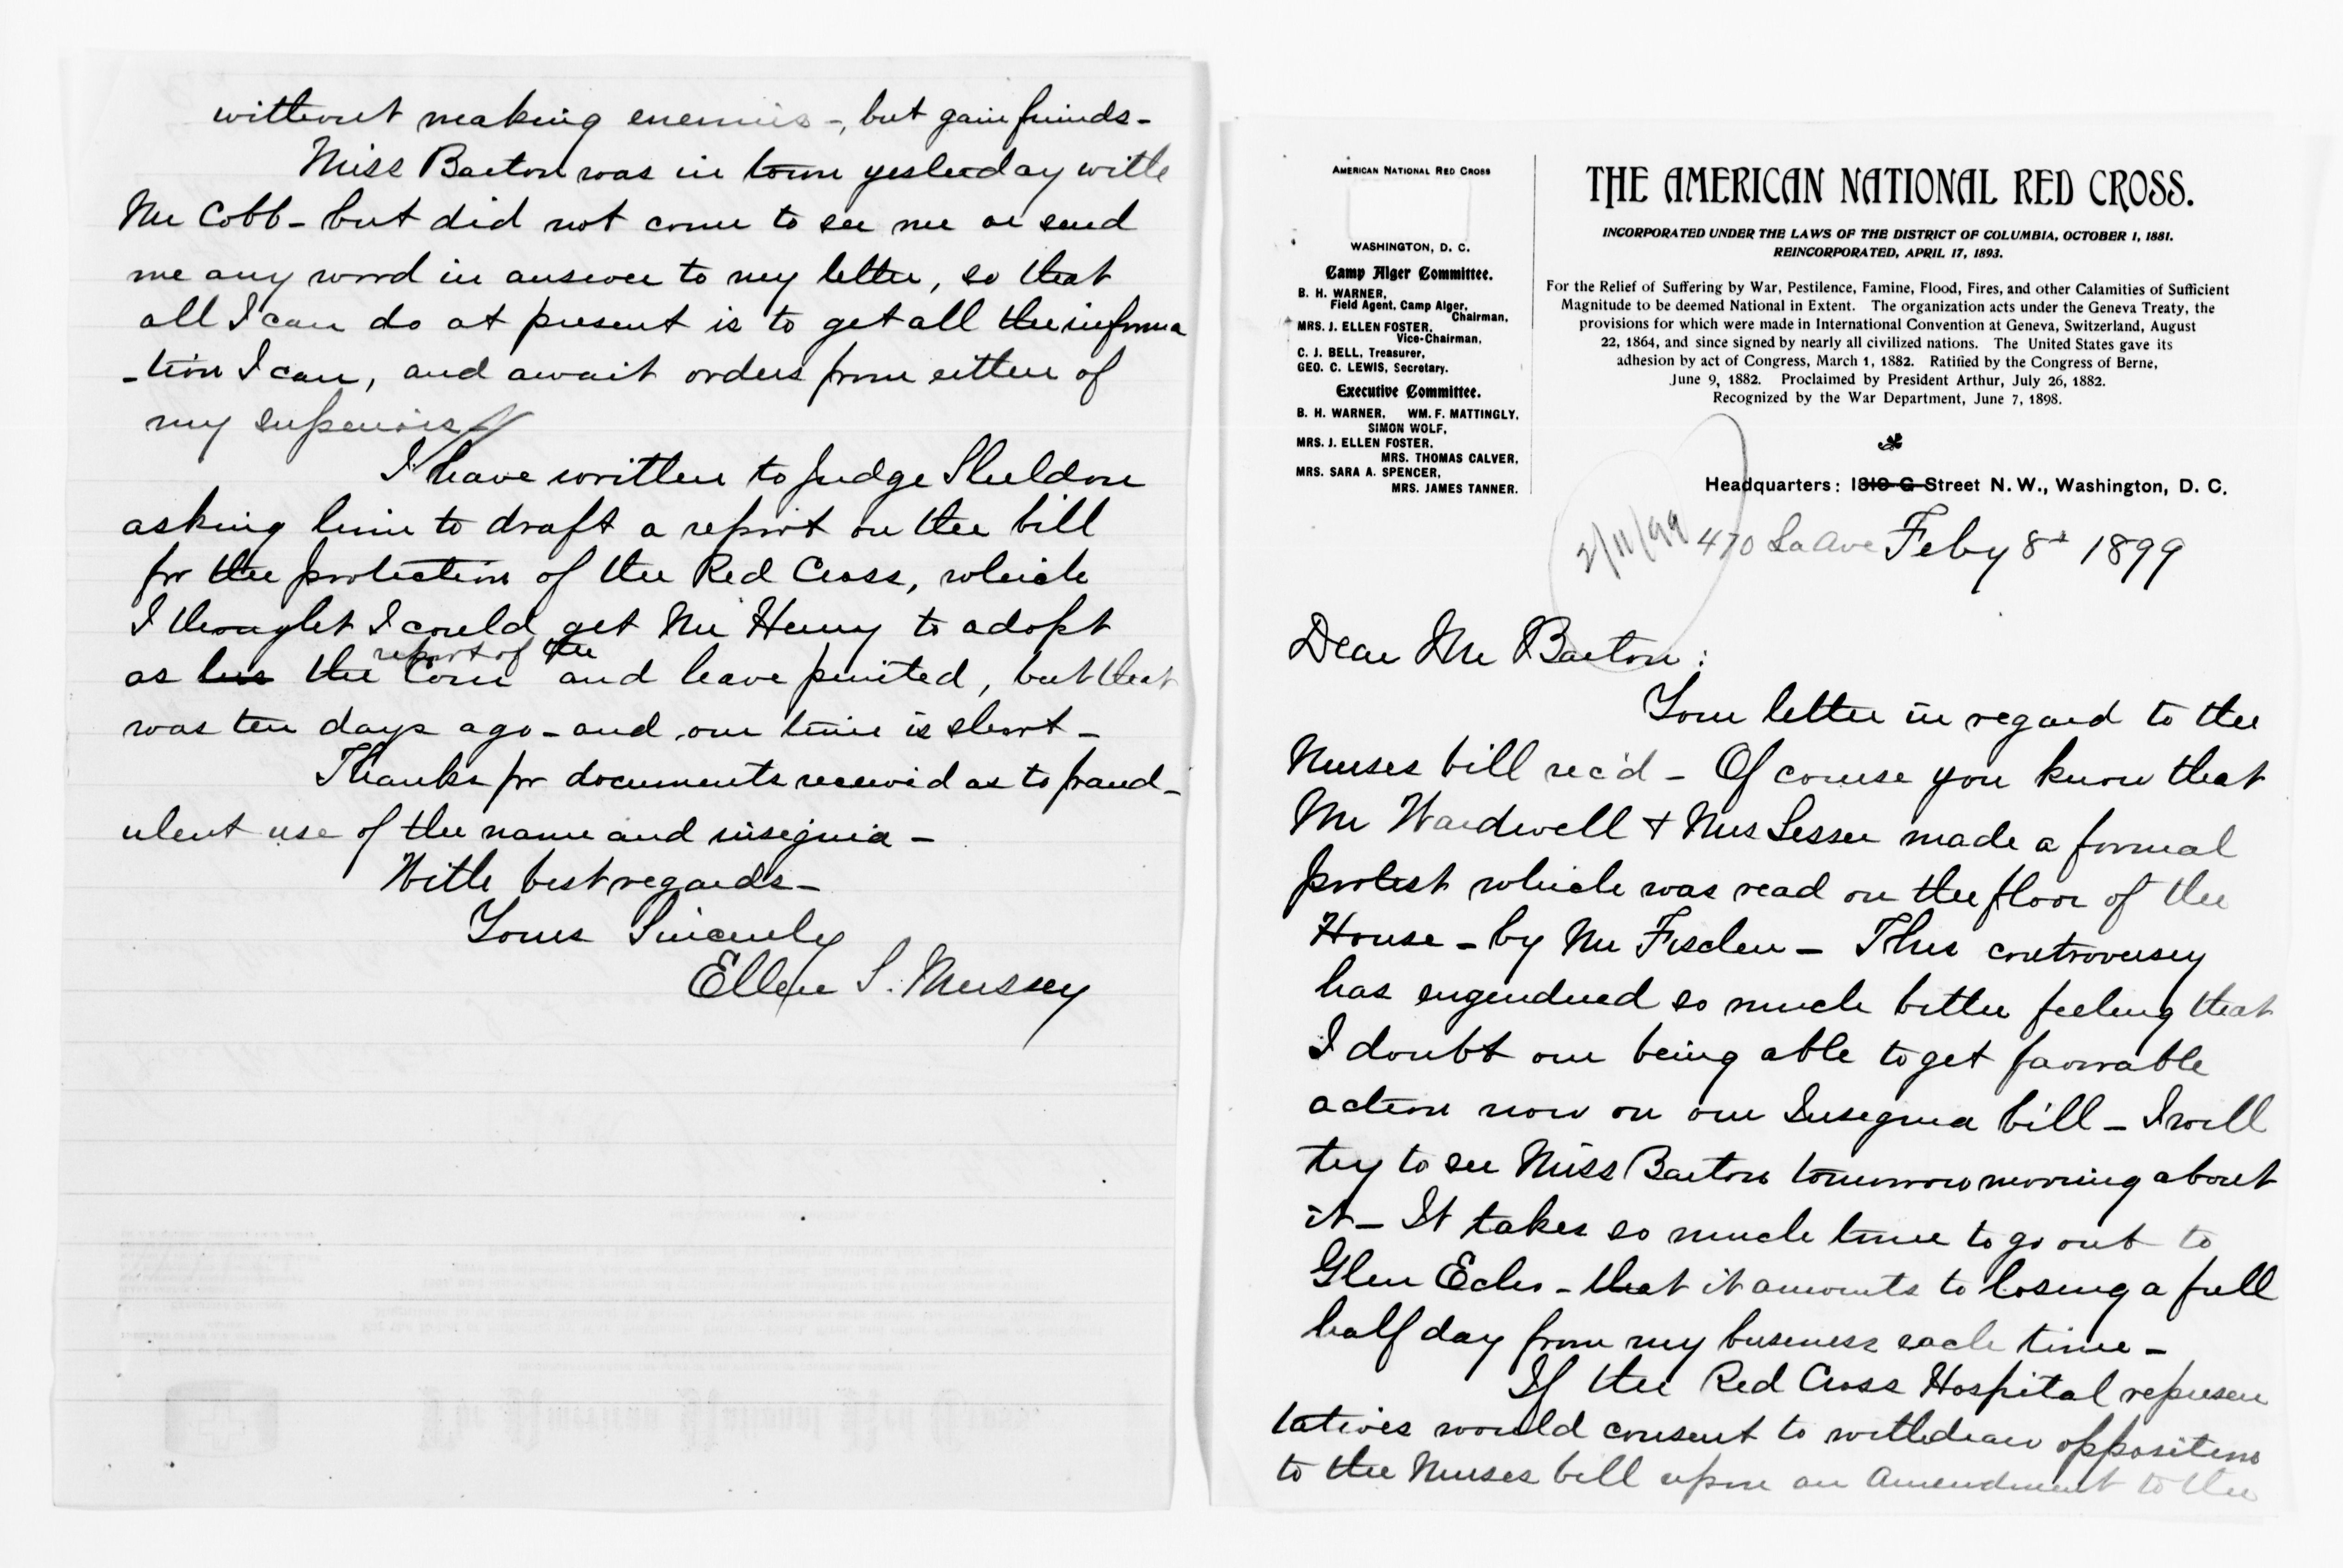 without making enemies -, but gain friends -
Miss Barton was in town yesterday with
Mr Cobb - but did not come to see me or send
me any word in answer to my letter, so that
all I can do at present is to get all the informa
-tion I can, and await orders from either of
my superiors
I have written to Judge Sheldon
asking him to draft a report on the bill
for the protection of the Red Cross, which
I thought I could get Mr Henry to adopt
report of the
as his the Com and have printed, but that
was ten days ago - and our time is short -
Thanks for documents received as to fraud-
ulent use of the name and insignia -
With best regards -
Yours Sincerely
Ellen S. Mussey
AMERICAN NATIONAL RED CROSS
WASHINGTON, D. C.
Camp Alger Committee.
B. H. WARNER,
Field Agent, Camp Alger,
Chairman,
MRS. J. ELLEN FOSTER,
Vice-Chairman,
C. J. BELL, Treasurer,
GEO. C. LEWIS, Secretary.
Executive Committee.
B. H. WARNER, WM. F. MATTINGLY,
SIMON WOLF,
MRS. J. ELLEN FOSTER,
MRS. THOMAS CALVER,
MRS. SARA A. SPENCER,
MRS. JAMES TANNER.
THE AMERICAN NATIONAL RED CROSS.
INCORPORATED UNDER THE LAWS OF THE DISTRICT OF COLUMBIA, OCTOBER 1, 1881.
REINCORPORATED, APRIL 17, 1893.
For the Relief of Suffering by War, Pestilence, Famine, Flood, Fires, and other Calamities of Sufficient
Magnitude to be deemed National in Extent. The organization acts under the Geneva Treaty, the
provisions for which were made in International Convention at Geneva, Switzerland, August
22, 1864, and since signed by nearly all civilized nations. The United States gave its
adhesion by act of Congress, March 1, 1882. Ratified by the Congress of Berne,
June 9, 1882. Proclaimed by President Arthur, July 26, 1882.
Recognized by the War Department, June 7, 1898.
Headquarters: 1810 G Street N. W., Washington, D. C.
2/11/99
470 La Ave Feby 8th 1899
Dear Mr Barton:
Your letter in regard to the
Nurses bill rec'd - Of course you know that
Mr Wardwell & Mrs Lesser made a formal
protest which was read on the floor of the
House - by Mr Fischer - This controversy
has engendered so much bitter feeling that
I doubt our being able to get favorable
action now on our Insignia bill - I will
try to see Miss Barton tomorrow morning about
it - It takes so much time to go out to
Glen Echo - that it amounts to losing a full
half day from my business each time -
If the Red Cross Hospital represen
tatives would consent to withdraw opposition
to the Nurses bill upon an Amendment to the